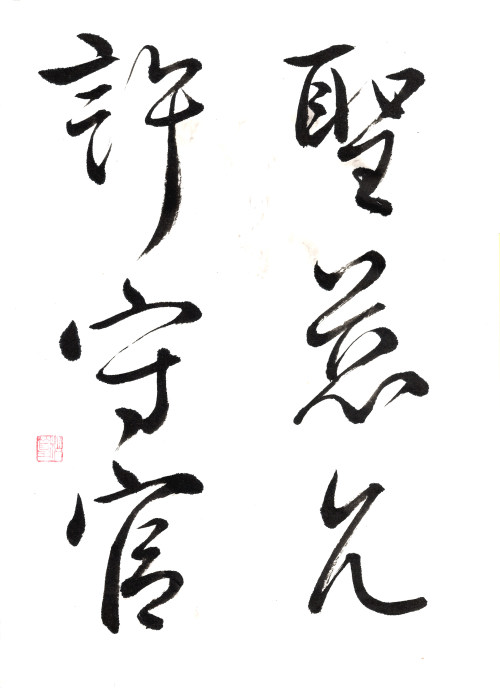 聖慈允
許守官